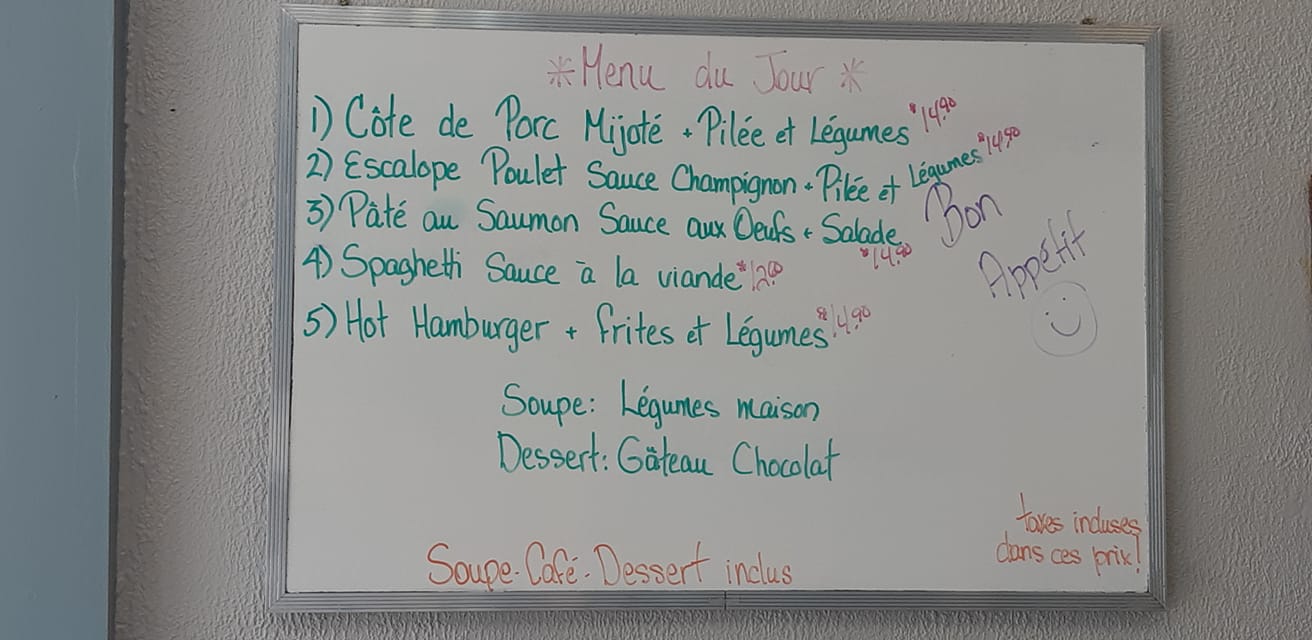 *Menu du Jour*
1) Côte de Porc Mijoté + Pilée et Légumes $14.90
2) Escalope Poulet Sauce Champignon + Pilée et Légumes $14.90
3) Pâté au Saumon Sauce aux Oeufs + Salade $14.90
4) Spaghetti Sauce à la viande $12.00
5) Hot Hamburger + frites et Légumes $14.90
Bon
Appétit
Soupe: Légumes maison
Dessert: Gâteau Chocolat
taxes incluses
dans ces prix!
Soupe-Café-Dessert inclus